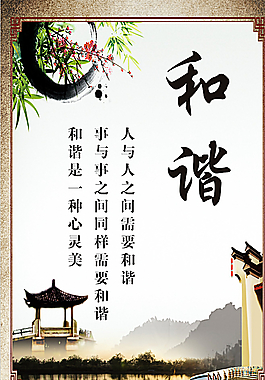 和谐
人与人之间需要和谐
事与事之间同样需要和谐
和谐是一种心灵美